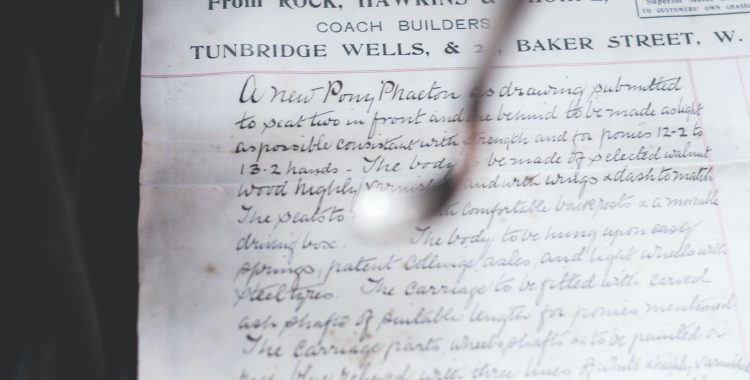 From ROCK, HAWKINS & THORPE,
COACH BUILDERS
TUNBRIDGE WELLS, & 2, BAKER STREET, W.
Superior Motor
TO CUSTOMERS' OWN CHASSIS
A new Pony Phaeton as drawing submitted
to seat two in front and one behind to be made as light
as possible consistent with strength and for ponies 12-2 to
13-2 hands - The body to be made of selected walnut
wood highly varnished and with wings & dash to match
The seats to with comfortable backrests & a movable
driving box. The body to be hung upon easy
springs, patent collinge axles, and light wheels with
steel tyres. The carriage to be fitted with carved
ash shafts of suitable length for ponies mentioned
The carriage parts, wheels, shafts &c to be painted
relieved with three lines of white & highly varnished